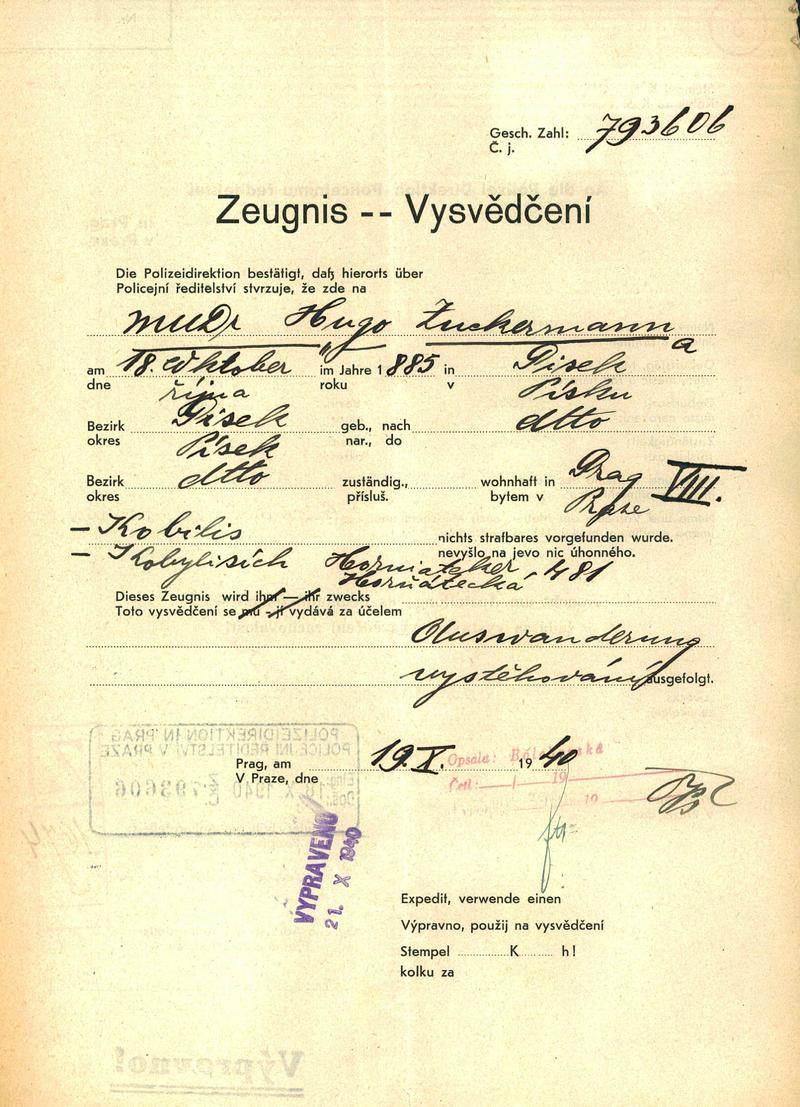 Gesch. Zahl: 793606
Č. j.
Zeugnis -- Vysvědčení
Die Polizeidirektion bestätigt, daß hierorts über
Policejní ředitelství stvrzuje, že zde na
MUDr Hugo Zuckermann
a
am 18. Oktober im Jahre 1885 in Pisek
dne října roku v Písku
Bezirk Pisek geb., nach dtto
okres Písek nar., do
Bezirk dtto zuständig., wohnhaft in Prag VIII.
okres přísluš. bytem v Praze
– Kobilis nichts strafbares vorgefunden wurde.
– Kobylisích nevyšlo na jevo nic úhonného.
Horňátecká 481
Dieses Zeugnis wird ihm — ihr zwecks
Toto vysvědčení se mu - jí vydává za účelem
Auswanderung
vystěhování ausgefolgt.
POLIZEIDIREKTION IN PRAG
POLICEJNÍ ŘEDITELSTVÍ V PRAZE
18. X. 1940
Č. 793606
Prag, am 19. X. 1940
V Praze, dne
Opsala:
Četl: 19
19
VYPRAVENO
21. X 1940
Expedit, verwende einen
Výpravno, použij na vysvědčení
Stempel K h!
kolku za
Výpravno!